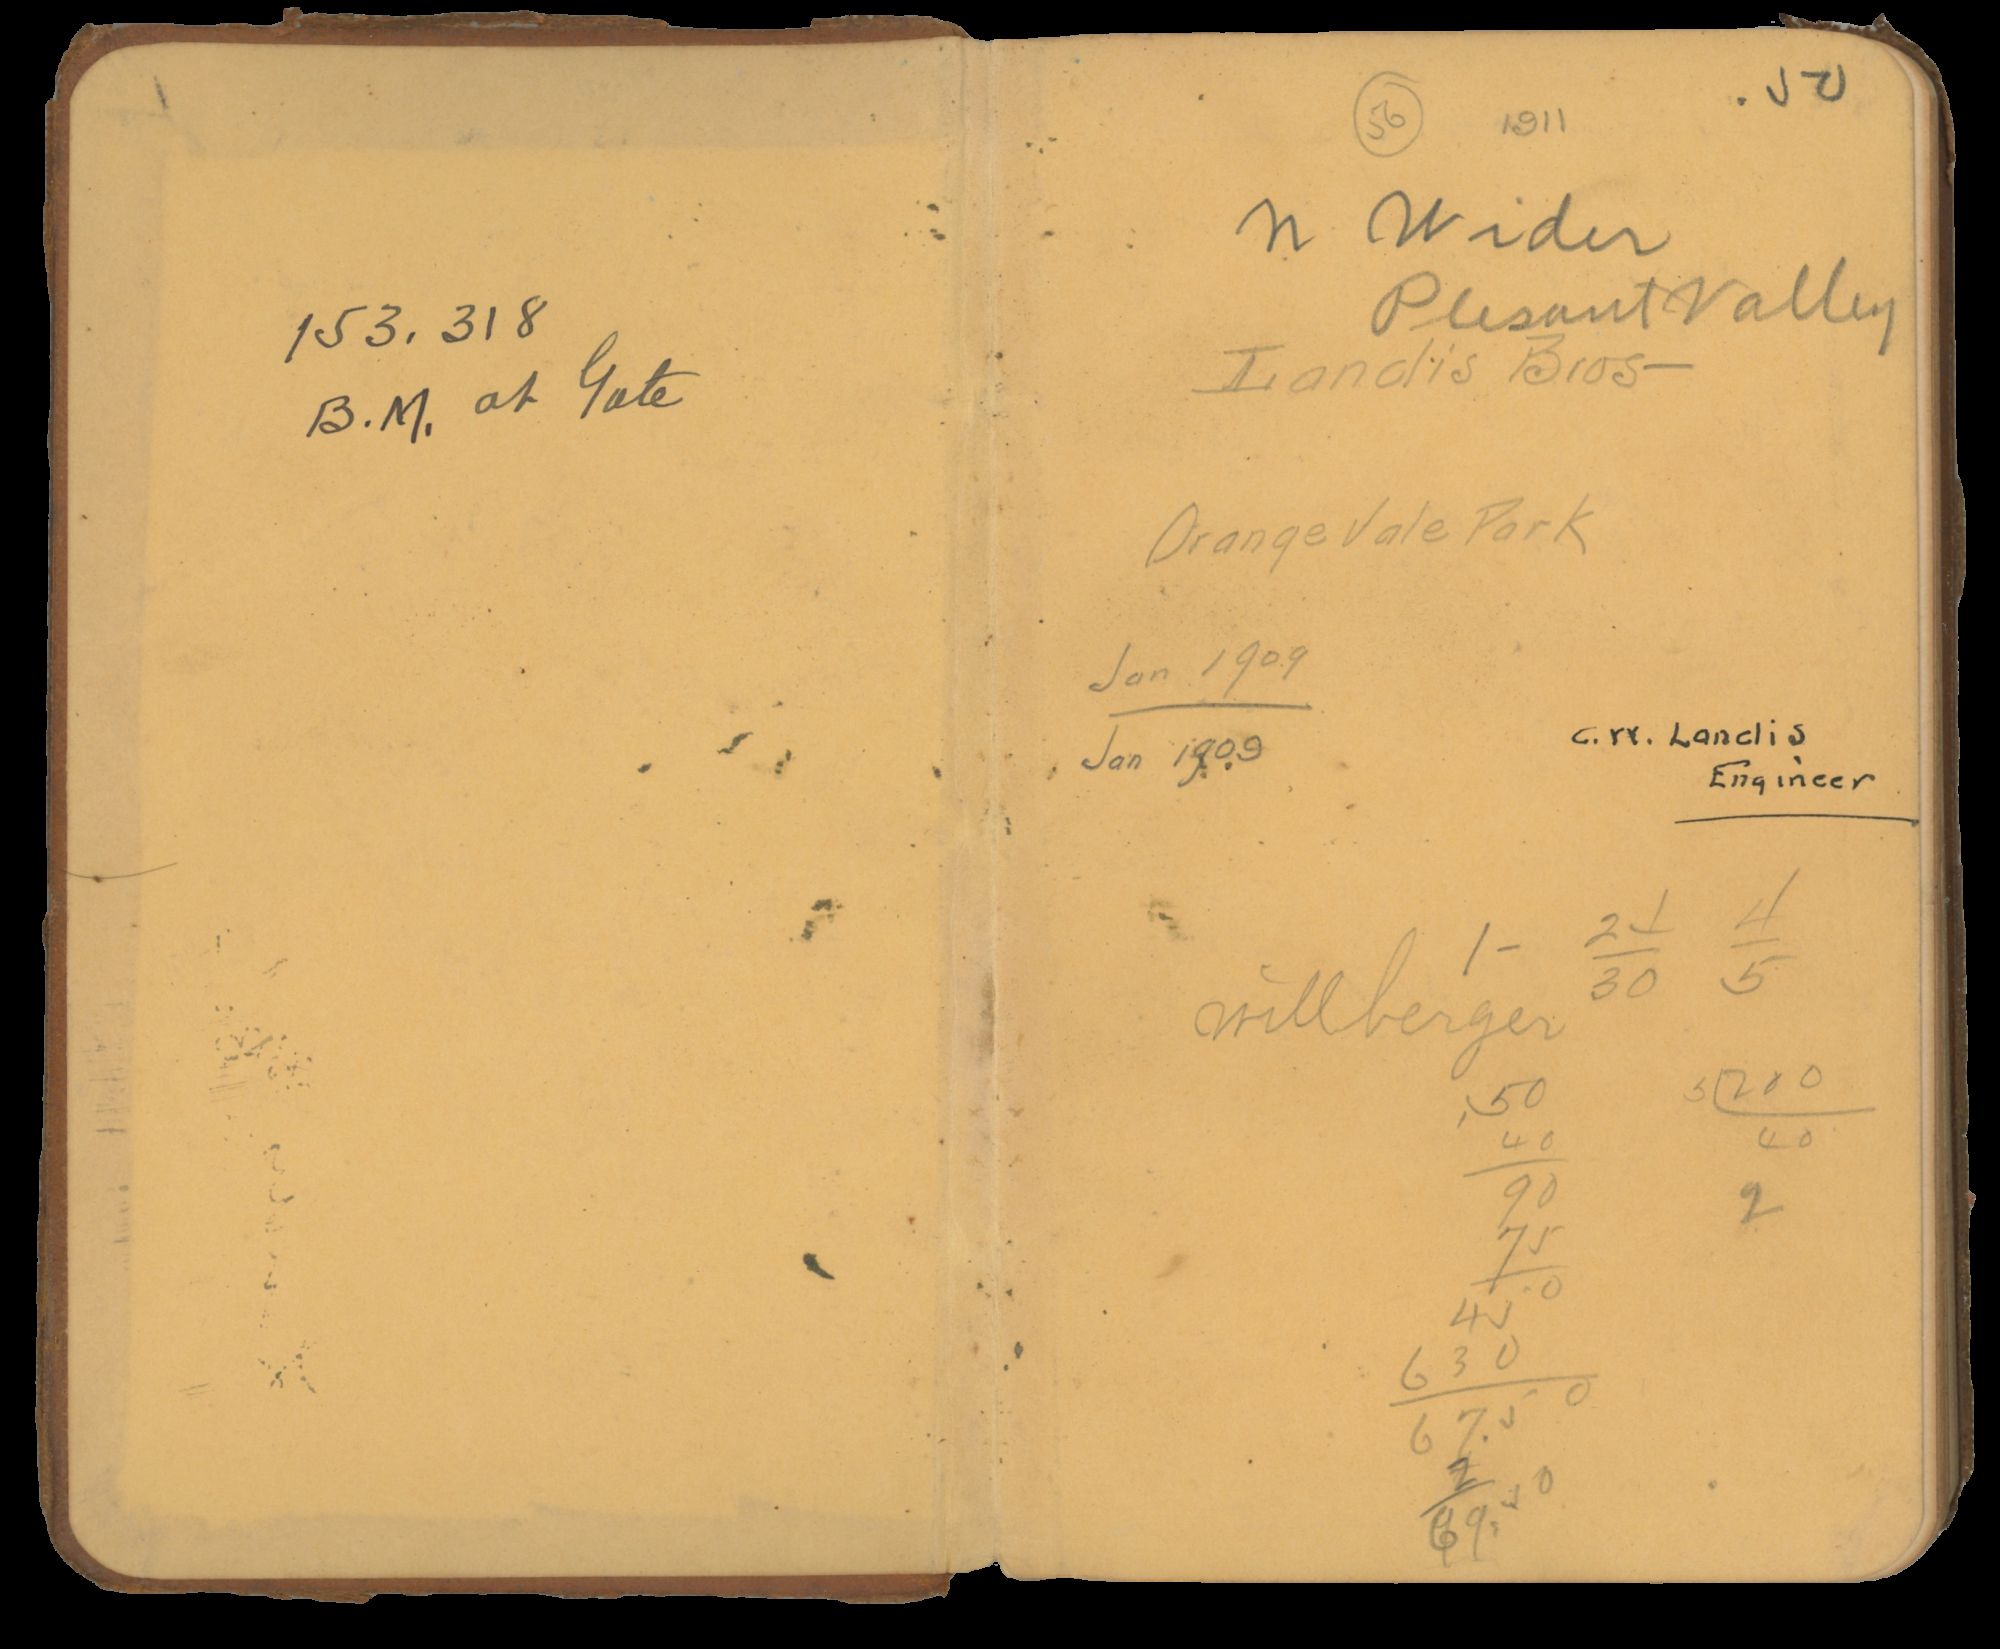 153.318
B.M. at Gate
.50
56 1911
N Wider
Plesant Valley
Landis Bros
Orange Vale Park
Jan 1909
Jan 1909
C.W. Landis
Engineer
1- 24/30 4/5
Willberger
.50
40
90
75
450
630
67.50
2
69.50
5 200
40
2